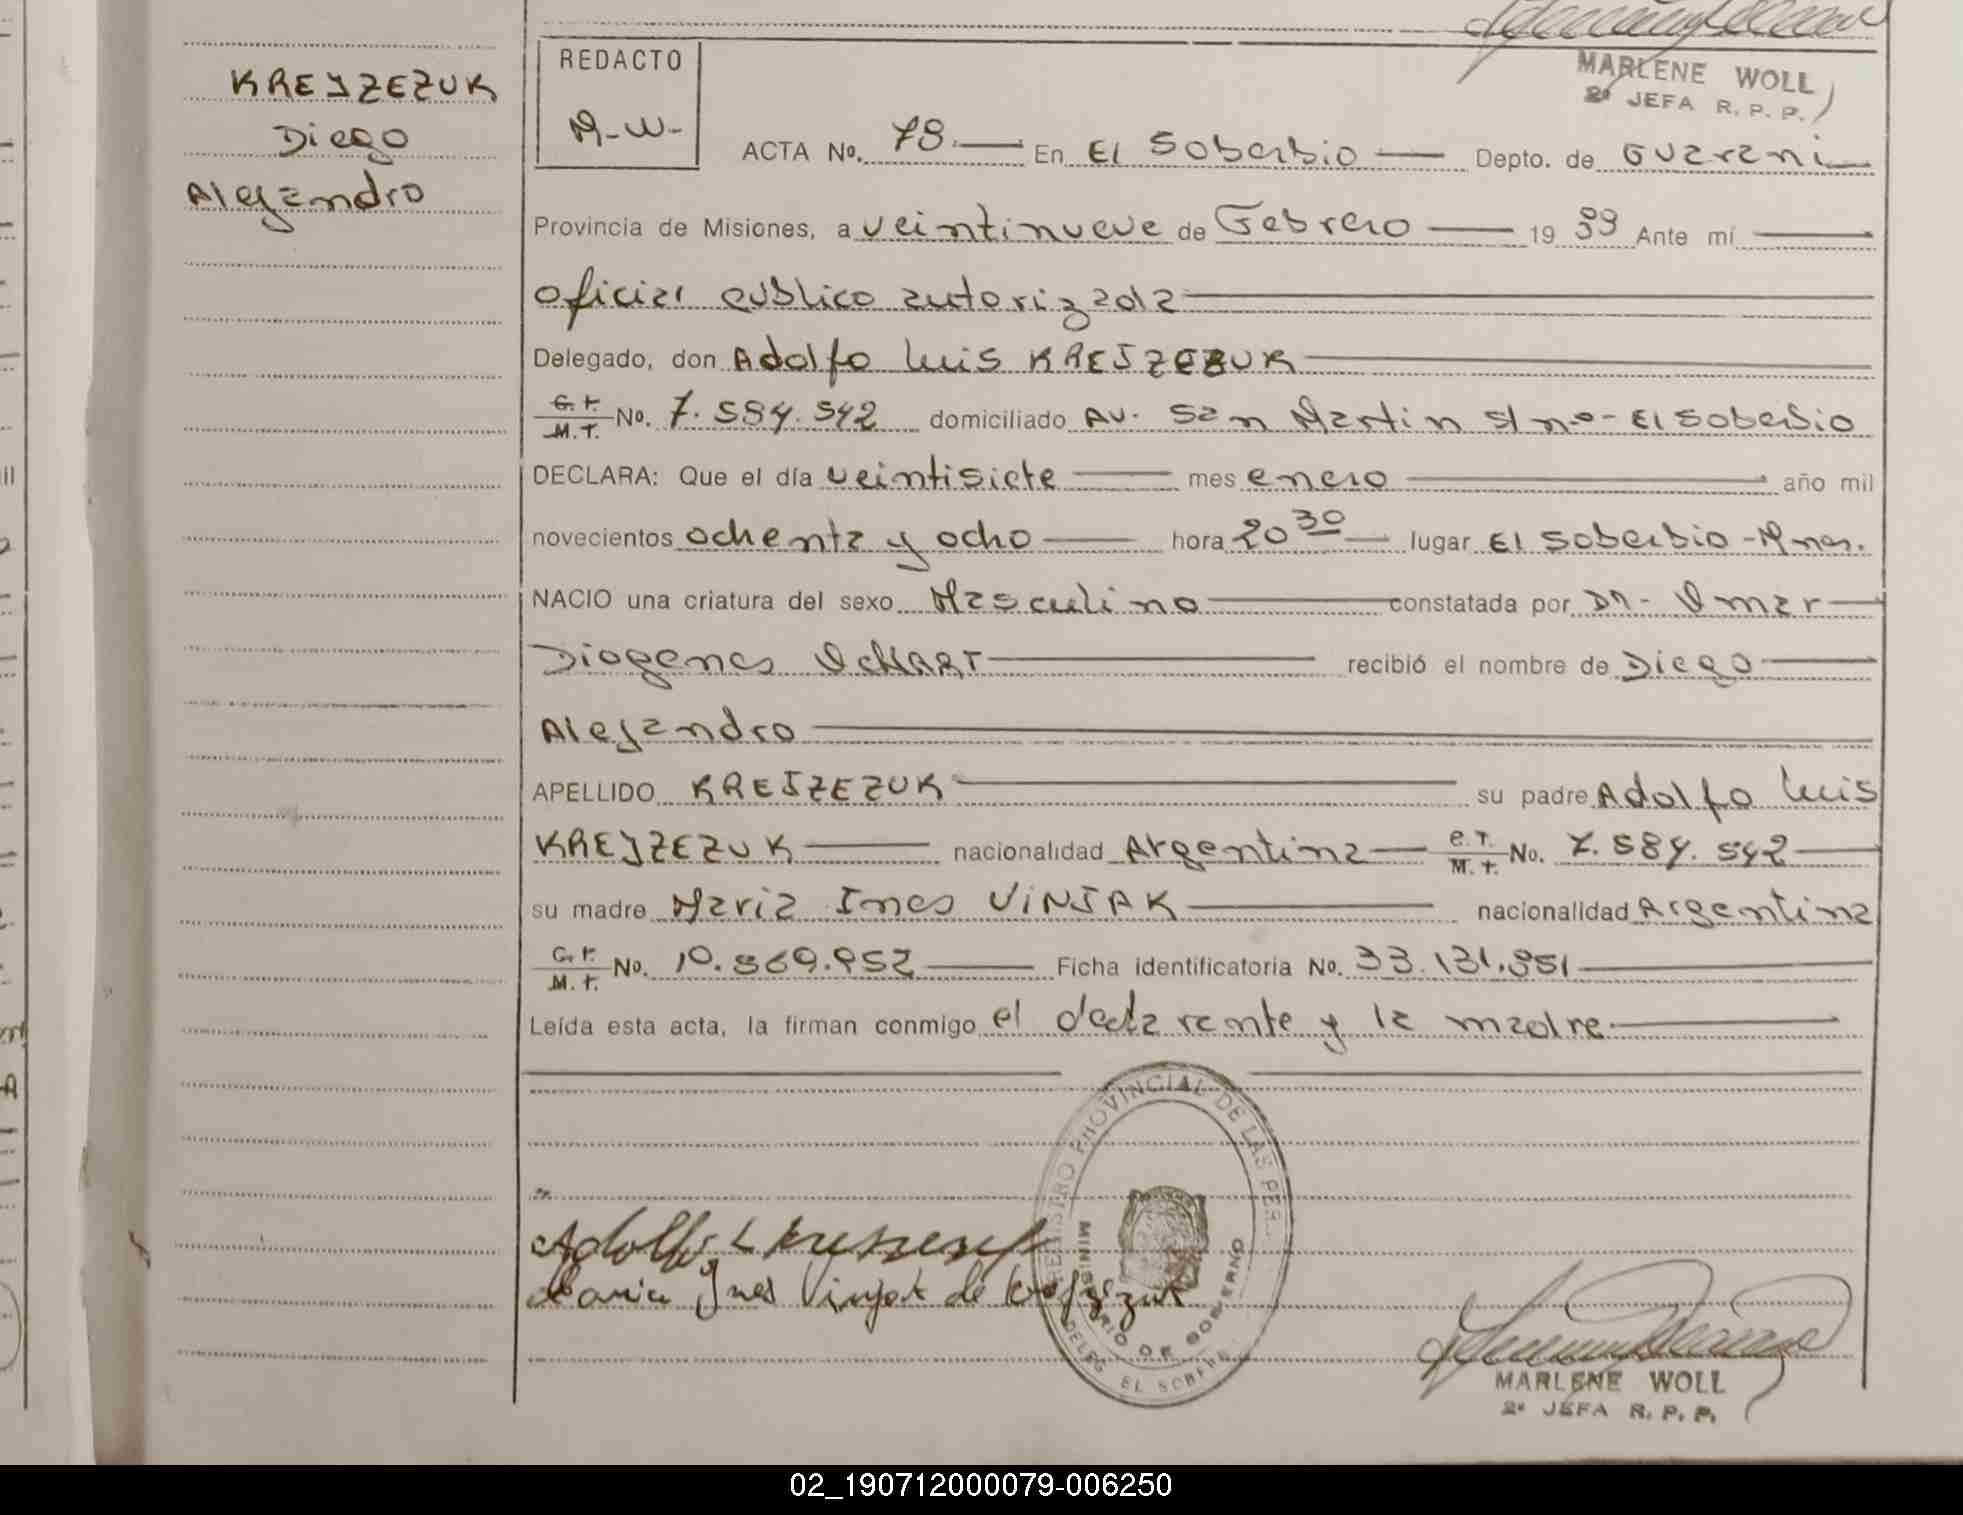 MARLENE WOLL
2ª JEFA R. P. P.
KREYZEZUK
Diego
Alejandro
REDACTO
M-W-
ACTA No. 78.— En El Soberbio — Depto. de Guarani —
Provincia de Misiones, a veintinueve de Febrero — 19 88 Ante mí —
oficial publico autorizada —
Delegado, don Adolfo Luis KREJZEZUK —
C.I. M.I. No. 7.584.542 domiciliado Av. San Martin s/nº- El Soberbio
DECLARA: Que el día veintisiete — mes enero — año mil
novecientos ochenta y ocho — hora 20 30 — lugar El Soberbio - Mnes.
NACIO una criatura del sexo Masculino — constatada por Dr. Omar —
Diogenes OcKART — recibió el nombre de Diego —
Alejandro —
APELLIDO KREJZEZUK — su padre Adolfo Luis
KREYZEZUK — nacionalidad Argentina — C.I. M.I. No. 7.584.542 —
su madre Maria Ines VINJAK — nacionalidad Argentina
C.I. M.I. No. 10.569.952 — Ficha identificatoria No. 33.131.951 —
Leída esta acta, la firman conmigo el declarante y la madre. —
REGISTRO PROVINCIAL DE LAS PER.
MINISTERIO DE GOBIERNO
DELEG. EL SOBERBIO
Maria Ines Vinjak de
MARLENE WOLL
2ª JEFA R. P. P.
02_190712000079-006250